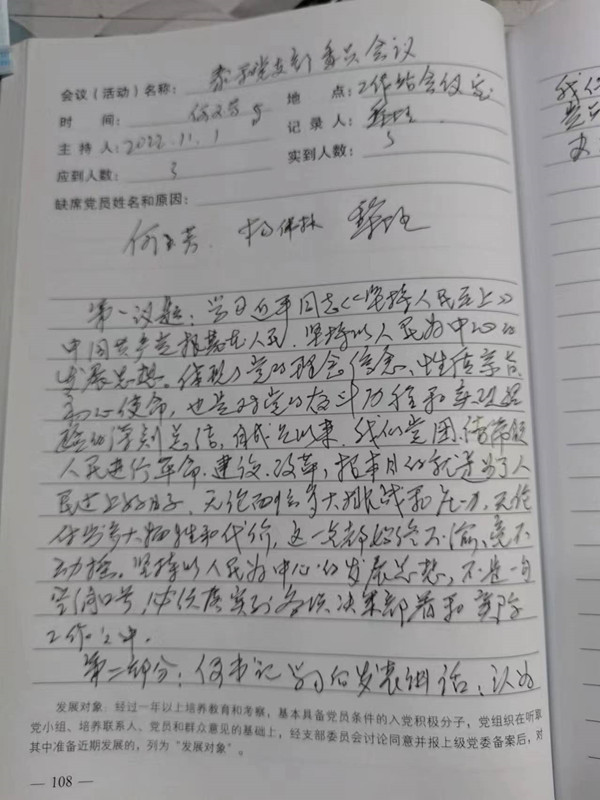 会议（活动）名称： 支部委员会议
时 间： 何文芳 地 点：工作站会议室
主 持 人：2022.11.1 记 录 人：
应到人数： 3 实到人数： 3
缺席党员姓名和原因：
何文芳. 杨保林
第一议题：学习近平同志《坚持人民至上》
中国共产党根基在人民. 坚持以人民为中心的
发展思想。体现了党的理念信念、性质宗旨、
初心使命，也是对党的奋斗历程和实践经
验的深刻总结，自成立以来，我们党团结带领
人民进行革命.建设.改革，根本目的就是为了人
民过上好日子，无论面临多大挑战和压力，无论
付出多大牺牲和代价，这一点都始终不渝、毫不
动摇。坚持以人民为中心的发展思想，不是一句
空洞口号，必须落实到各项决策部署和实际
工作之中.
第二部分：何书记 学习后发表讲话：认为
发展对象：经过一年以上培养教育和考察，基本具备党员条件的入党积极分子，党组织在听取
党小组、培养联系人、党员和群众意见的基础上，经支部委员会讨论同意并报上级党委备案后，对
其中准备近期发展的，列为“发展对象”。
— 108 —